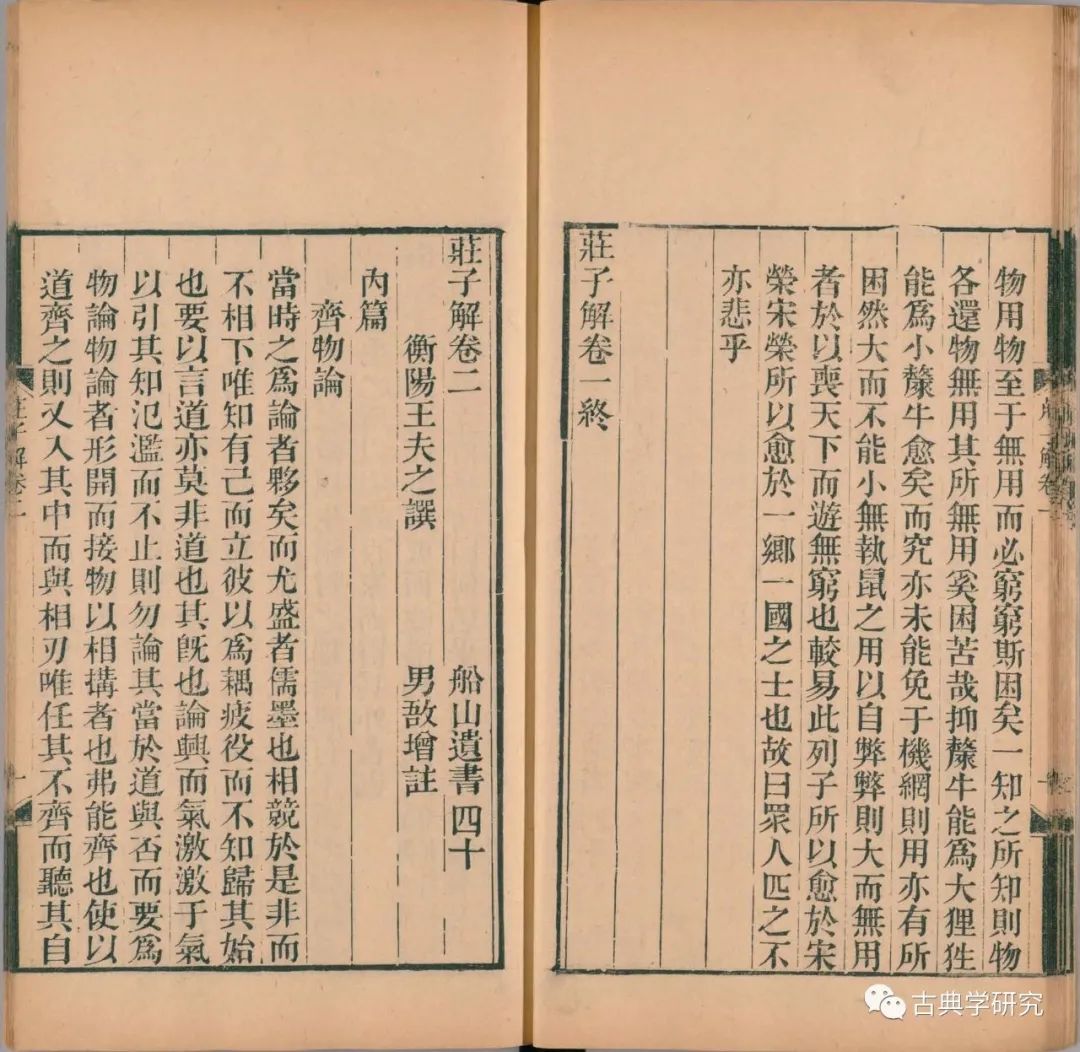 物用物至于無用而必窮窮斯困矣一知之所知則物
各還物無用其所無用奚困苦哉抑斄牛能爲大狸狌
能爲小斄牛愈矣而究亦未能免于機網則用亦有所
困然大而不能小無執鼠之用以自弊弊則大而無用
者於以喪天下而遊無窮也較易此列子所以愈於宋
榮宋榮所以愈於一鄉一國之士也故曰眾人匹之不
亦悲乎
莊子解卷一終
莊子解卷二
船山遺書四十
衡陽王夫之譔
男敔增註
內篇
齊物論
當時之爲論者夥矣而尤盛者儒墨也相競於是非而
不相下唯知有己而立彼以爲耦疲役而不知歸其始
也要以言道亦莫非道也其旣也論興而氣激激于氣
以引其知氾濫而不止則勿論其當於道與否而要爲
物論物論者形開而接物以相搆者也弗能齊也使以
道齊之則又入其中而與相刃唯任其不齊而聽其自
莊子解卷二
一
古典学研究